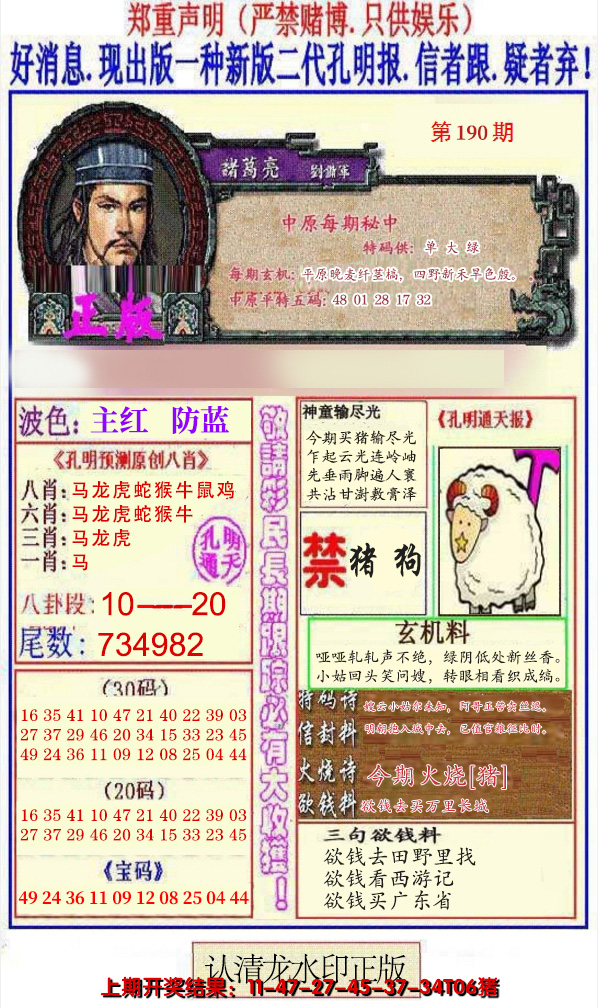 郑重声明（严禁赌博.只供娱乐）
好消息.现出版一种新版二代孔明报.信者跟.疑者弃!
第190期
諸葛亮 劉備軍
中原每期秘中
特码供：单大绿
每期玄机：平原晚麦纤茎槁，四野新禾早色般。
中原平特五码：48 01 28 17 32
正版
波色：主红 防蓝
《孔明预测原创八肖》
八肖：马龙虎蛇猴牛鼠鸡
六肖：马龙虎蛇猴牛
三肖：马龙虎
一肖：马
孔明
通天
八卦段：10——20
尾数：734982
敬請彩民長期跟踪必有大收獲！
神童输尽光
今期买猪输尽光
乍起云光连岭岫
先垂雨脚遍人寰
共沾甘澍敷膏泽
《孔明通天报》
禁猪 狗
玄机料
哑哑轧轧声不绝，绿阴低处新丝香。
小姑回头笑问嫂，转眼相看织成缟。
（30码）
16 35 41 10 47 21 40 22 39 03
27 37 29 46 20 34 15 33 23 45
49 24 36 11 09 12 08 25 04 44
（20码）
16 35 41 10 47 21 40 22 39 03
27 37 29 46 20 34 15 33 23 45
《宝码》
49 24 36 11 09 12 08 25 04 44
特码诗 嫂云小姑尔未知，阿哥正苦卖丝迟。
信封料 明朝拖入城中去，已值官粮征比时。
火烧诗 今期火烧[猪]
欲钱料 欲钱去买万里长城
三句欲钱料
欲钱去田野里找
欲钱看西游记
欲钱买广东省
认清龙水印正版
上期开奖结果：11-47-27-45-37-34T06猪